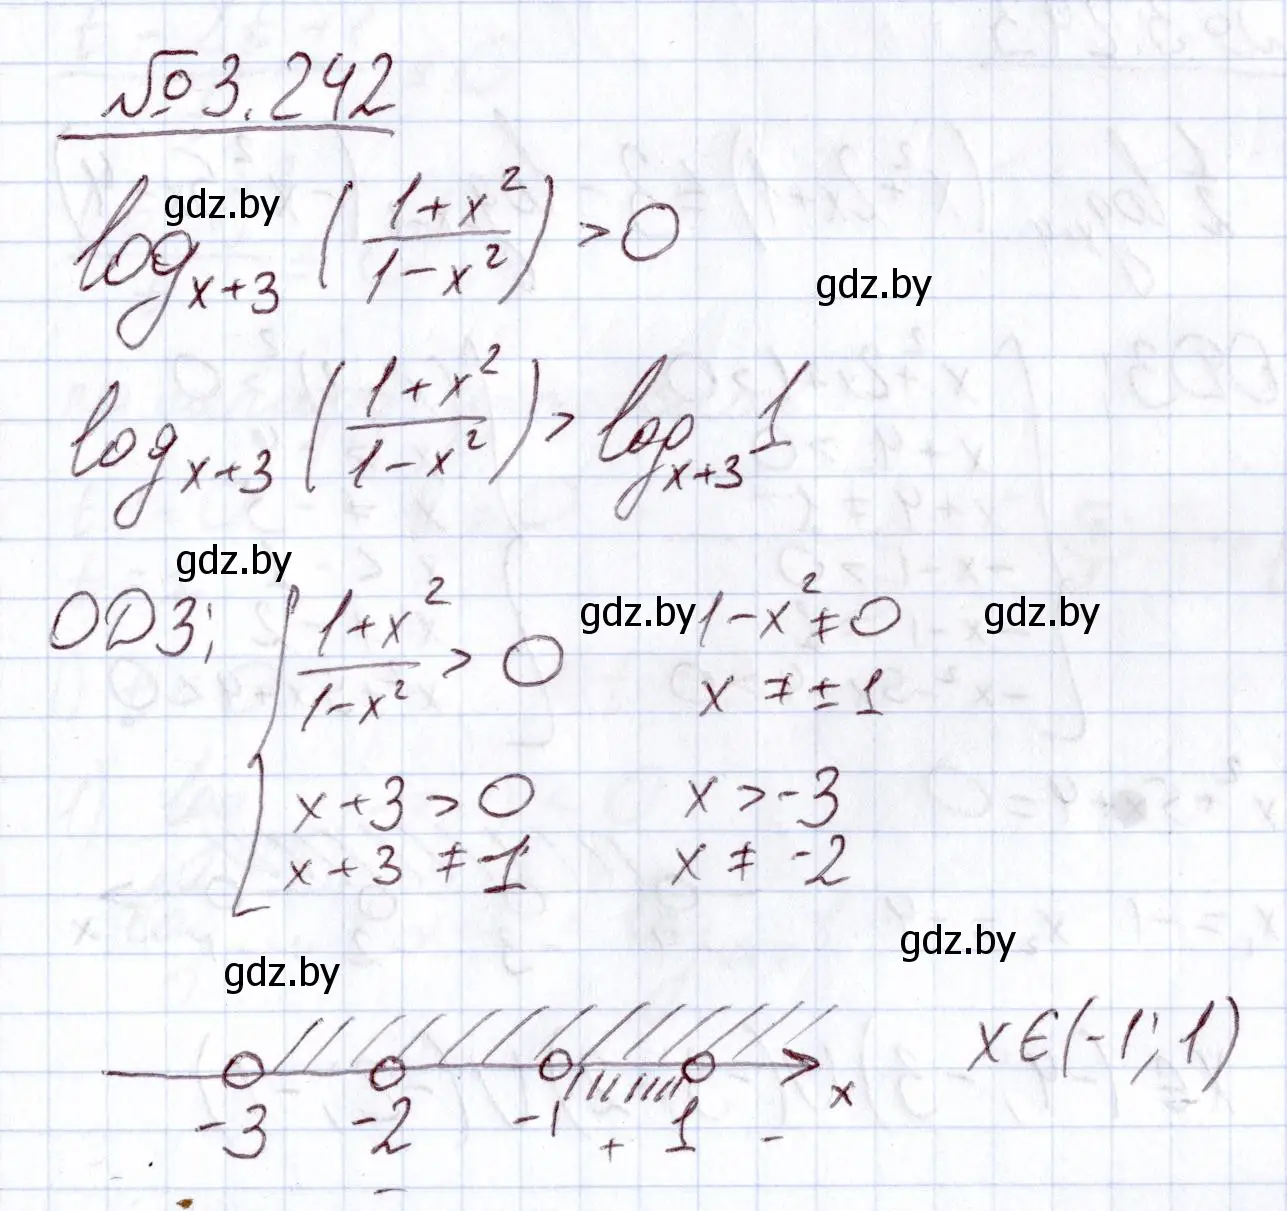 № 3.242
gdz.by
log_{x+3} ( (1+x²)/(1-x²) ) > 0
gdz.by
log_{x+3} ( (1+x²)/(1-x²) ) > log_{x+3} 1
gdz.by
ОДЗ; { (1+x²)/(1-x²) > 0 gdz.by 1-x² ≠ 0 gdz.by
x ≠ ± 1
x+3 > 0 x > -3
x+3 ≠ 1 x ≠ -2
gdz.by
gdz.by
x ∈ (-1; 1)
-3 -2 -1 + 1 - x
-